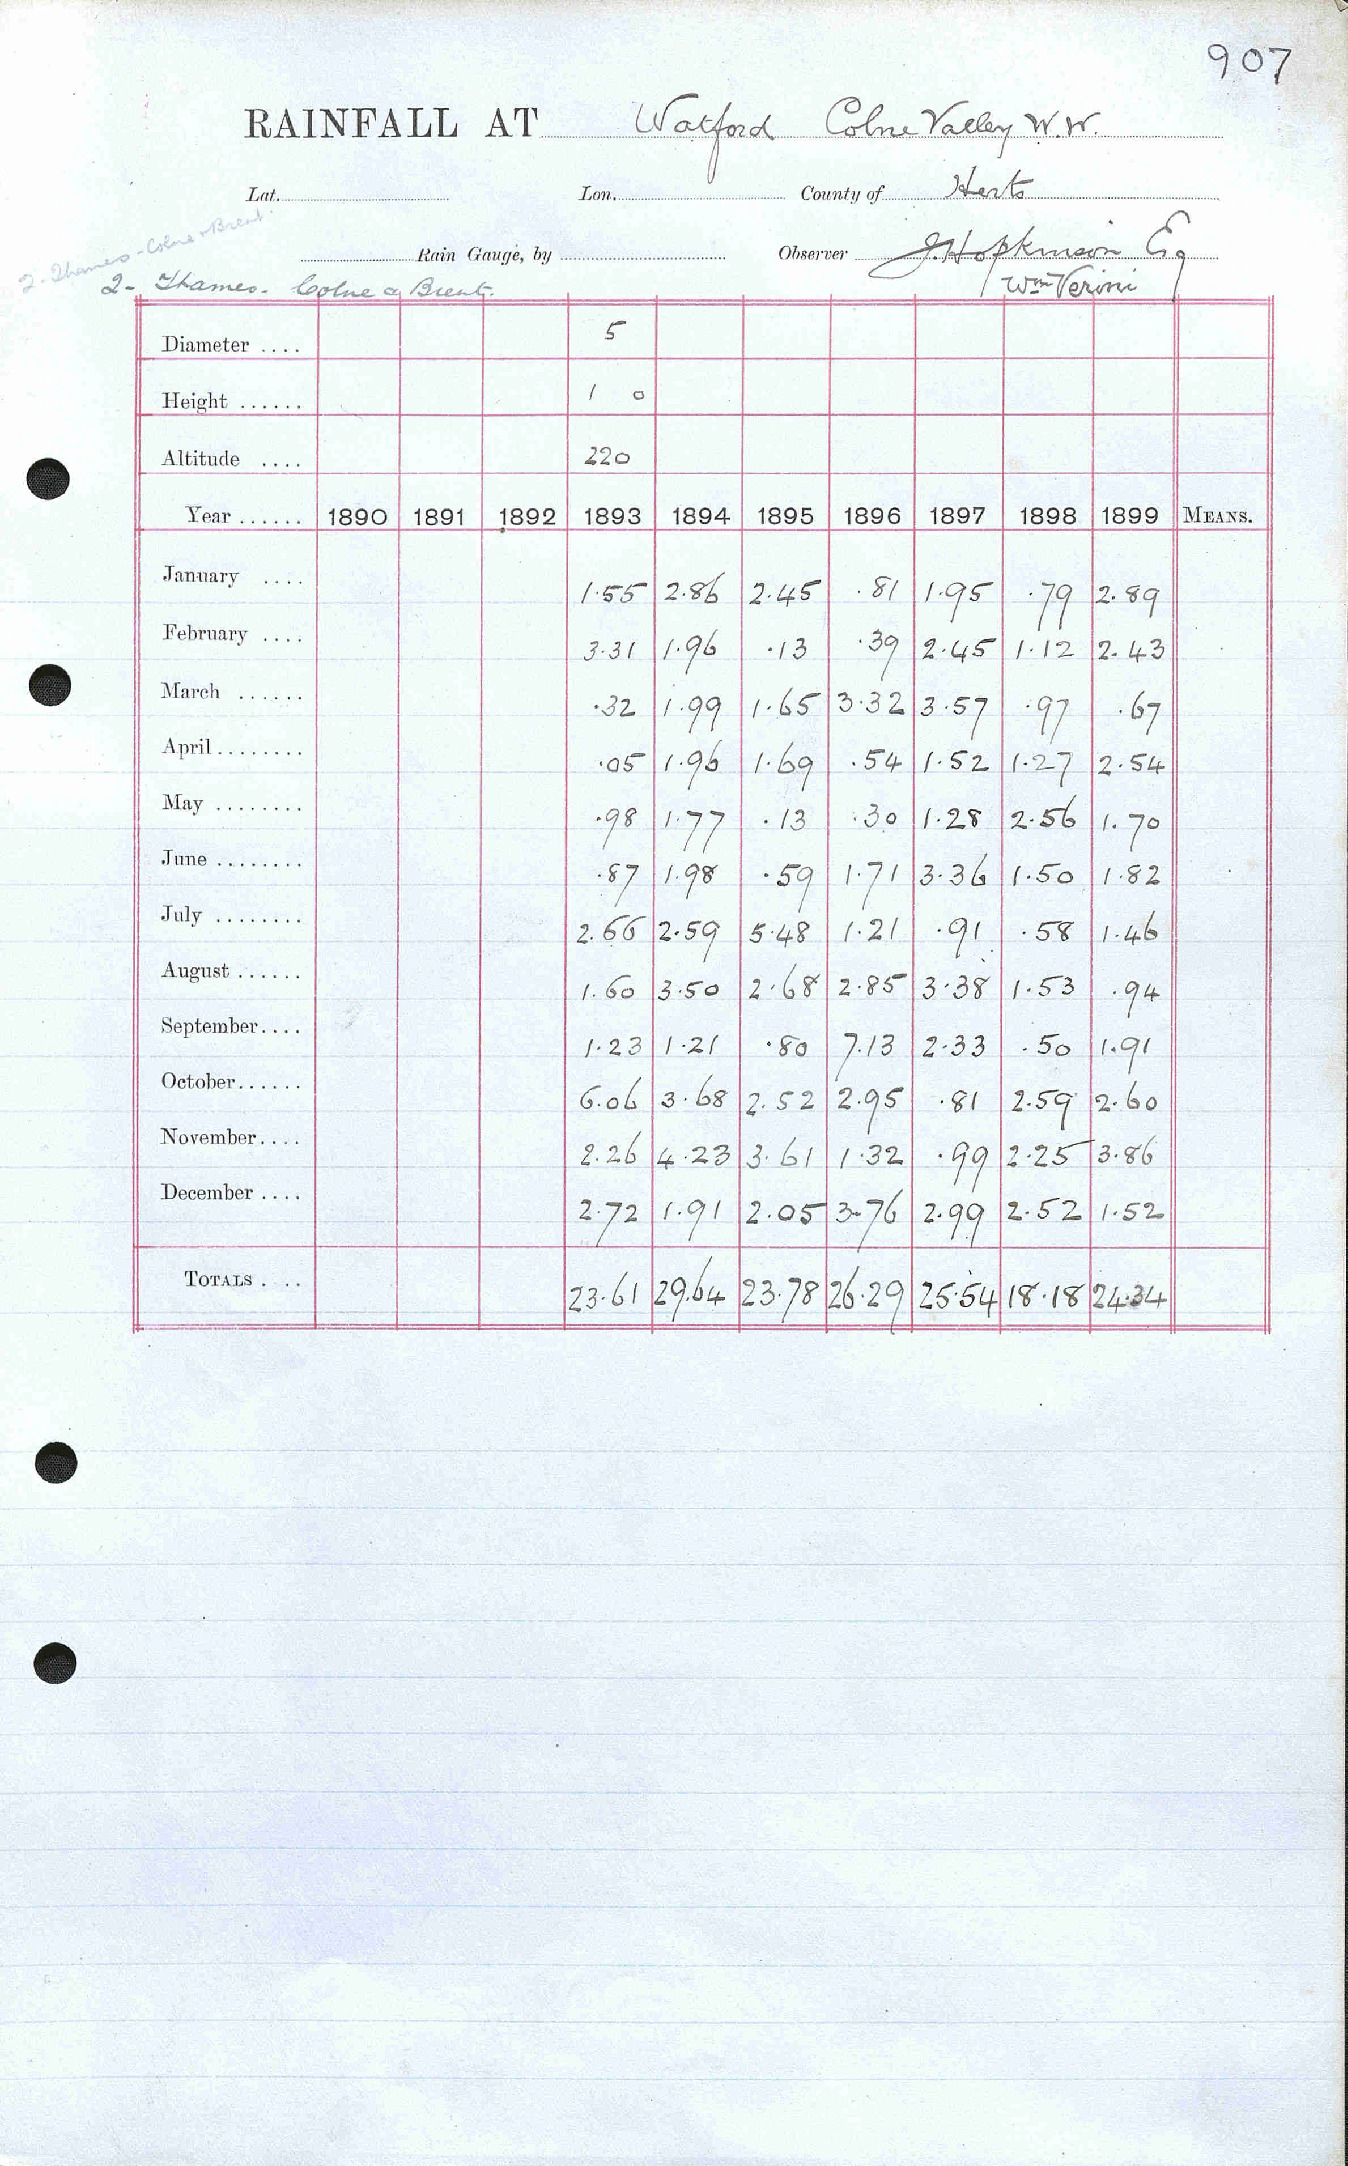 907
RAINFALL AT Watford Colne Valley W.W.
Lat. Lon. County of Herts
2. Thames - Colne & Brent.
Rain Gauge, by Observer J. Hopkinson Esq
2- Thames. Colne & Brent. Wm Verini
Diameter .... 5
Height ...... 1 0
Altitude .... 220
Year ...... 1890 1891 1892 1893 1894 1895 1896 1897 1898 1899 MEANS.
January .... 1.55 2.86 2.45 .81 1.95 .79 2.89
February .... 3.31 1.96 .13 .39 2.45 1.12 2.43
March ...... .32 1.99 1.65 3.32 3.57 .97 .67
April ........ .05 1.96 1.69 .54 1.52 1.27 2.54
May ........ .98 1.77 .13 .30 1.28 2.56 1.70
June ........ .87 1.98 .59 1.71 3.36 1.50 1.82
July ........ 2.66 2.59 5.48 1.21 .91 .58 1.46
August ...... 1.60 3.50 2.68 2.85 3.38 1.53 .94
September.... 1.23 1.21 .80 7.13 2.33 .50 1.91
October...... 6.06 3.68 2.52 2.95 .81 2.59 2.60
November.... 2.26 4.23 3.61 1.32 .99 2.25 3.86
December .... 2.72 1.91 2.05 3.76 2.99 2.52 1.52
TOTALS . .. 23.61 29.64 23.78 26.29 25.54 18.18 24.34